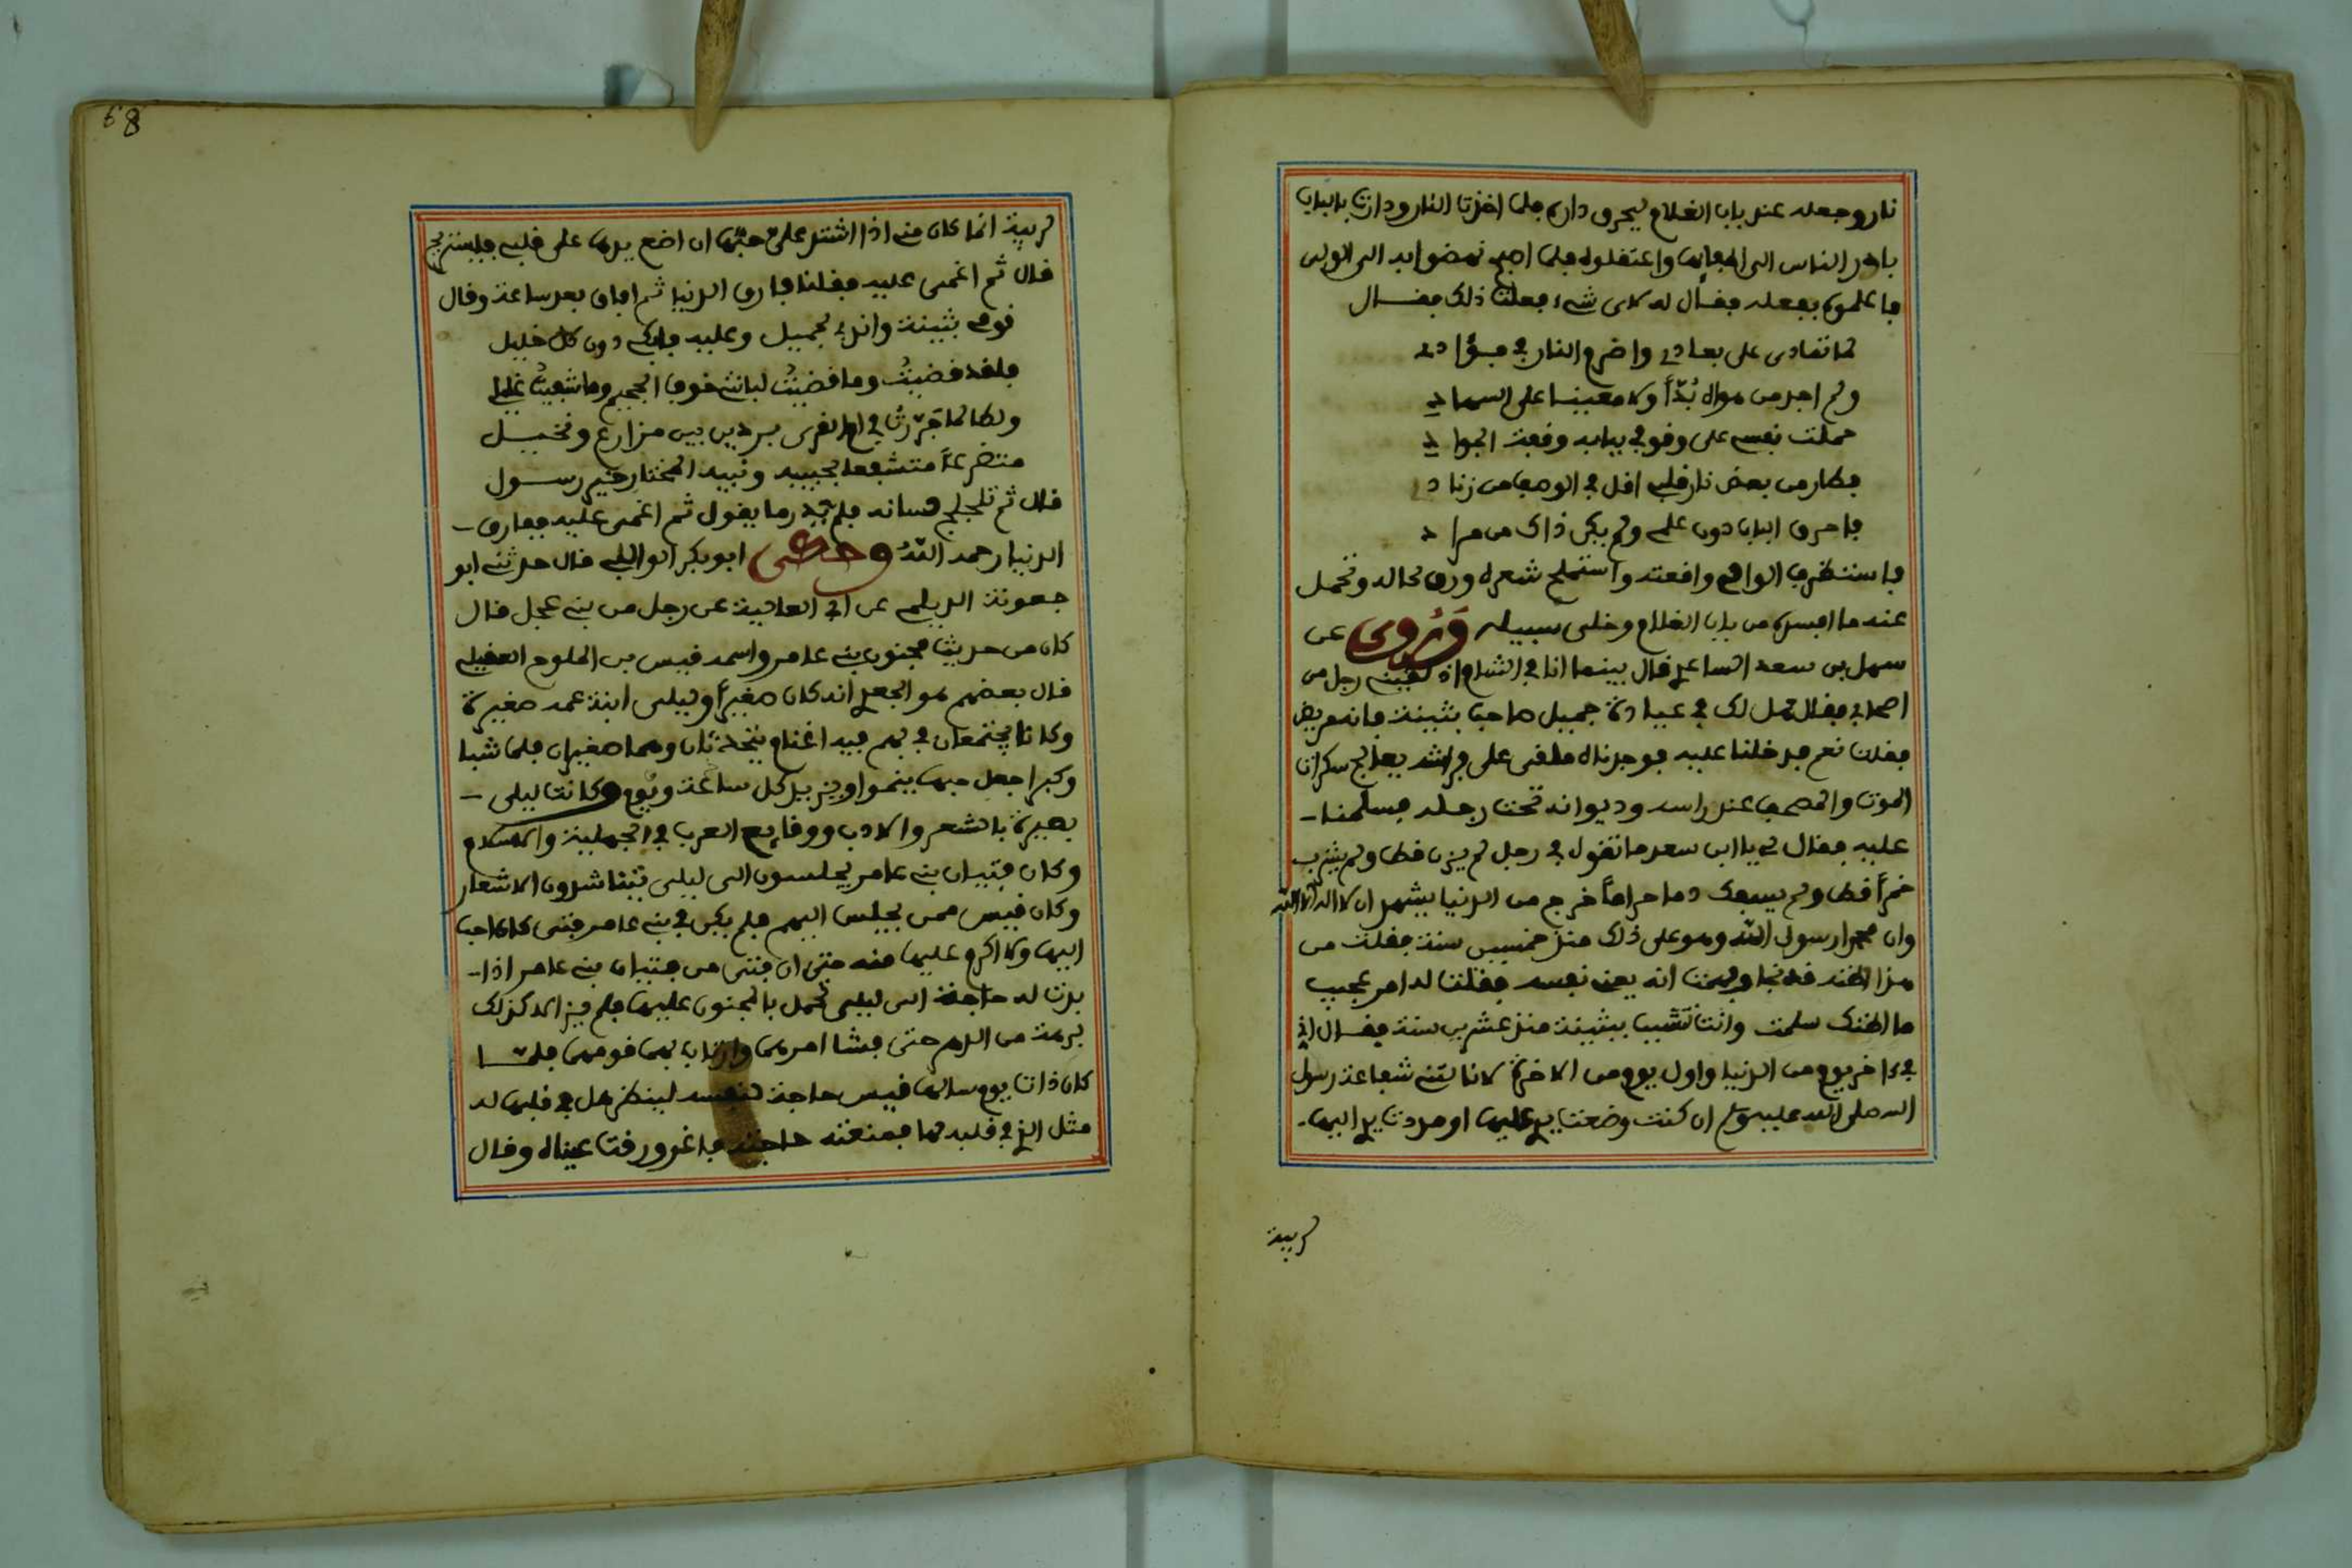 نار وجعله عند باب الغلام ليحرق داره فلما اخذت النار ودارت بالباب
بادر الناس الى اطفايها واعتقلوه فلما اصبح نهضوا به الى الوالى
فاعلموه بفعله فقال له لاى شىء فعلت ذلك فقال
لما تمادى على بعادى واضرم النار فى فؤادى
ولم اجد من هواه بُدّاً ولا معينا على السهاد
حملت نفسى على وقوفى ببابه وقفة الجواد
فطار من بعض نار قلبى اقل فى الوصف من زناد
فاحرق الباب دون علمى ولم يكن ذاك من مراد
فاستظرف الوالى واقعته واستملح شعره ورق لحاله وتحمل
عنه ما افسده من باب الغلام وخلى سبيله وَرُوِى عن
سهل بن سعد الساعدى قال بينما انا فى الشام اذ لقينى رجل من
اصحابى فقال هل لك فى عيادة جميل صاحب بثينة فانه مريض
فقلت نعم فدخلنا عليه فوجدناه ملقى على فراشه يعالج سكرات
الموت والمصحف عند راسه وديوانه تحت رجله فسلمنا
عليه فقال لى يا ابن سعد ما تقول فى رجل لم يزن قط ولم يشرب
خمراً قط ولم يسفك دما حراماً خرج من الدنيا يشهد ان لا اله الا الله
وان محمدا رسول الله وهو على ذلك منذ خمسين سنة فقلت من
هذا اظنه قد نجا وفهمت انه يعنى نفسه فقلت له امر عجيب
ما اظنك سلمت وانت تشبب ببثينة منذ عشرين سنة فقال انى
فى ءاخر يوم من الدنيا واول يوم من الاخرة لا نالتنى شفاعة رسول
الله صلى الله عليه وسلم ان كنت وضعت يدى عليها او مددت يدى اليها
لريبة
68
لريبة انما كان منى اذا اشتد على حبها ان اضع يدها على قلبى فليستريح
قال ثم اغمى عليه فقلنا فارق الدنيا ثم افاق بعد ساعة وقال
قومى بثينة واندبى لجميل وعليه فابكى دون كل خليل
فلقد قضيتُ وما قضيتُ لبانتى خوف الجحيم وما شفيت غليلى
ولطالما جَرّرتُ فى ام القرى بردين بين مزارع ونخيل
متضرعاً متشفعا بحبيبه ونبيه المختار خير رسول
قال ثم تلجلج لسانه فلم يدر ما يقول ثم اغمى عليه ففارق
الدنيا رحمه اللهُ وحكى ابو بكر الوالبى قال حدثنى ابو
جعونة الديلمى عن ابى العالية عن رجل من بنى عجل قال
كان من حديث مجنون بنى عامر واسمه قيس بن الملوح العقيلى
قال بعضهم هو الجعدى انه كان صغيراً وليلى ابنة عمه صغيرة
وكانا يجتمعان فى بهم فيه اغنام يتحدثان وهما صغيران فلما شبا
وكبرا جعل حبها ينموا ويزيد كل ساعة ويوم وكانت ليلى
بصيرة بالشعر والادب ووقايع العرب فى الجهلية والاسلام
وكان فتيان بنى عامر يجلسون الى ليلى يتناشدون الاشعار
وكان قيس ممن يجلس اليهم فلم يكن فى بنى عامر فتى كان احب
اليها ولا اكرم عليها منه حتى ان فتى من فتيان بنى عامر اذا
بدت له حاجة الى ليلى تحمل بالمجنون عليها فلم يزالا كذلك
برهة من الدهر حتى فشا امرهما وارتاب بهما قومهما فلما
كان ذات يوم سالها قيس حاجة لنفسه لينظر هل فى قلبها له
مثل الذى فى قلبه لها فمنعته حاجته فاغرورقت عيناه وقال